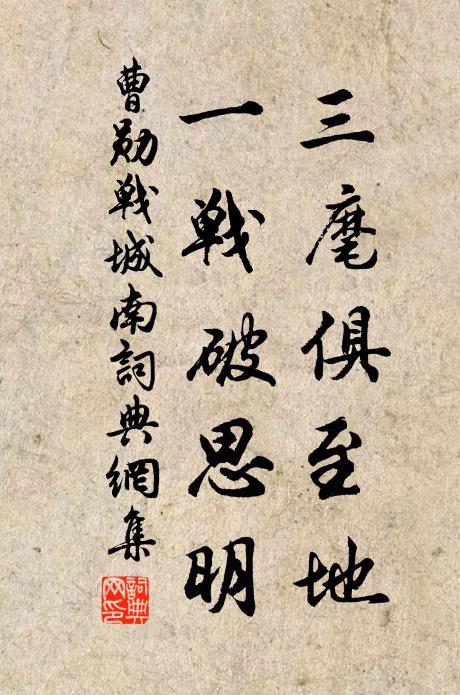 三麾俱至地
一戰破思明
曹勛戰城南詞典網集
詞典網印